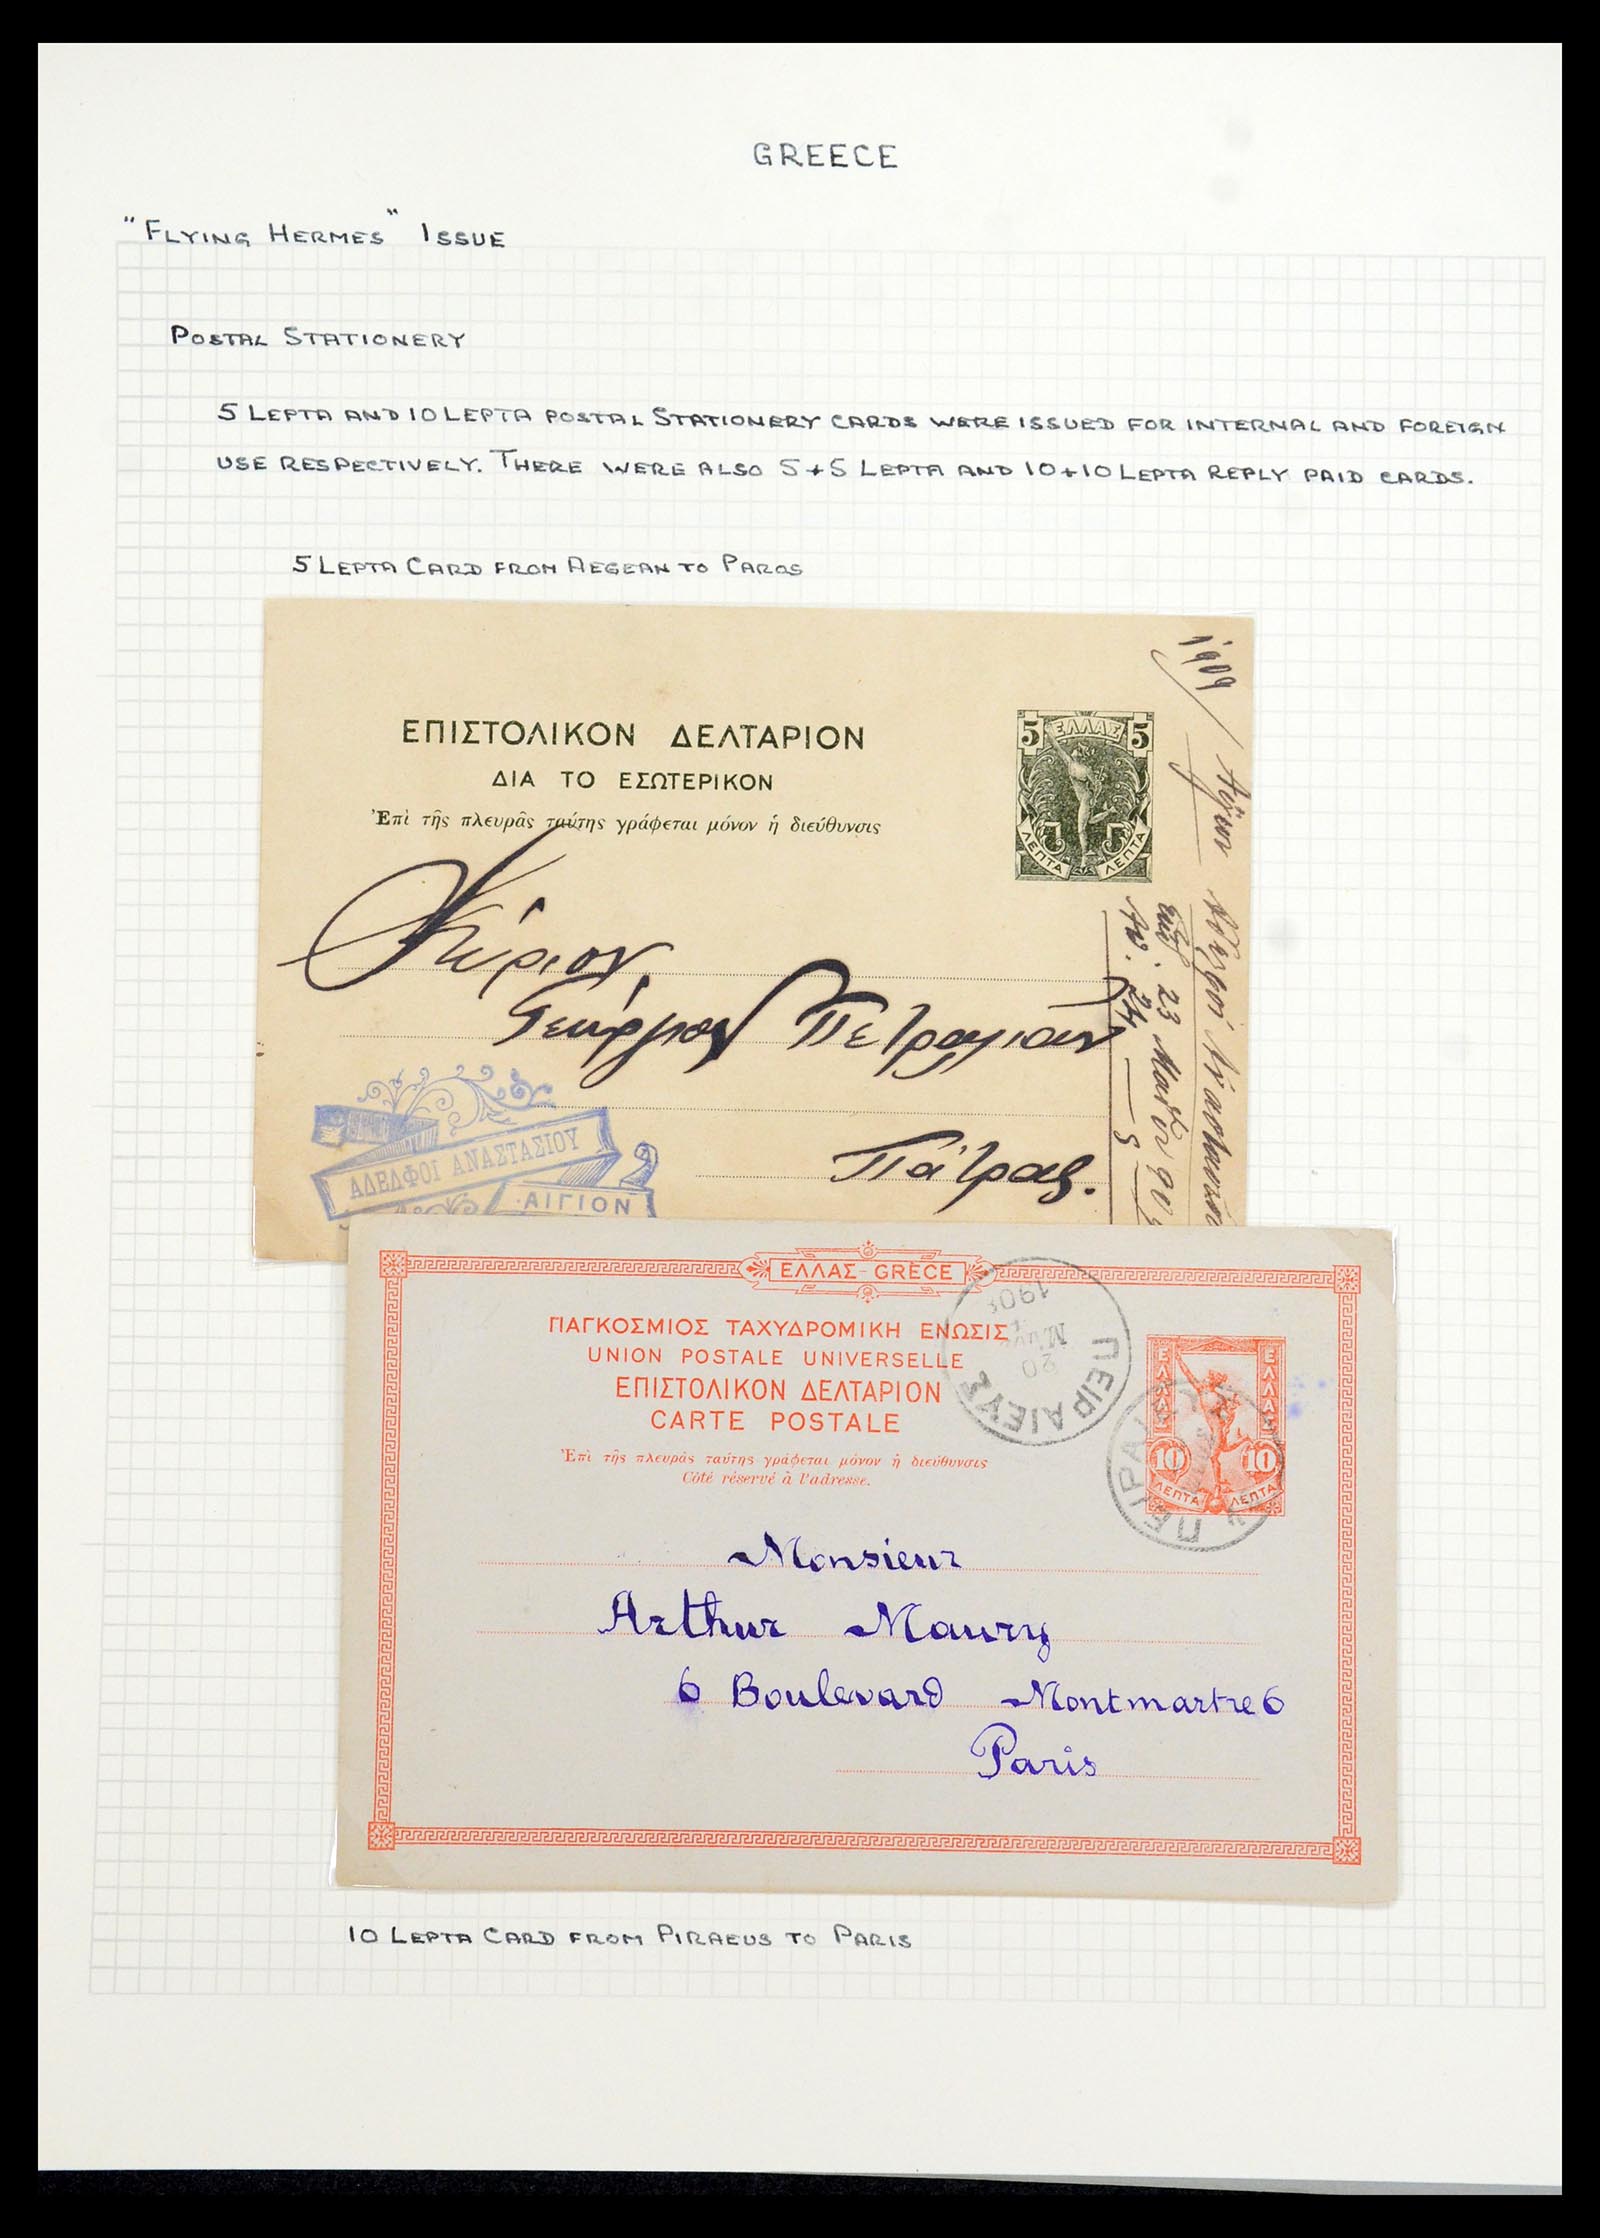 GREECE
"FLYING HERMES" ISSUE
POSTAL STATIONERY
5 LEPTA AND 10 LEPTA POSTAL STATIONERY CARDS WERE ISSUED FOR INTERNAL AND FOREIGN
USE RESPECTIVELY. THERE WERE ALSO 5+5 LEPTA AND 10+10 LEPTA REPLY PAID CARDS.
5 LEPTA CARD FROM AEGEAN TO PAROS
ΕΠΙΣΤΟΛΙΚΟΝ ΔΕΛΤΑΡΙΟΝ
ΔΙΑ ΤΟ ΕΣΩΤΕΡΙΚΟΝ
Ἐπὶ τῆς πλευρᾶς ταύτης γράφεται μόνον ἡ διεύθυνσις
5 ΕΛΛΑΣ 5
5 5
ΛΕΠΤΑ ΛΕΠΤΑ
1909
Αίγιον
23
24
Κύριον
Γεώργιον
Πάτρας.
ΑΔΕΛΦΟΙ ΑΝΑΣΤΑΣΙΟΥ
ΑΙΓΙΟΝ
ΕΛΛΑΣ-GRÈCE
ΠΑΓΚΟΣΜΙΟΣ ΤΑΧΥΔΡΟΜΙΚΗ ΕΝΩΣΙΣ
UNION POSTALE UNIVERSELLE
ΕΠΙΣΤΟΛΙΚΟΝ ΔΕΛΤΑΡΙΟΝ
CARTE POSTALE
Ἐπὶ τῆς πλευρᾶς ταύτης γράφεται μόνον ἡ διεύθυνσις
Côté réservé à l'adresse.
ΠΕΙΡΑΙΕΥΣ
20
ΕΛΛΑΣ ΕΛΛΑΣ
10 10
ΛΕΠΤΑ ΛΕΠΤΑ
Monsieur
Arthur Maury
6 Boulevard Montmartre 6
Paris
10 LEPTA CARD FROM PIRAEUS TO PARIS